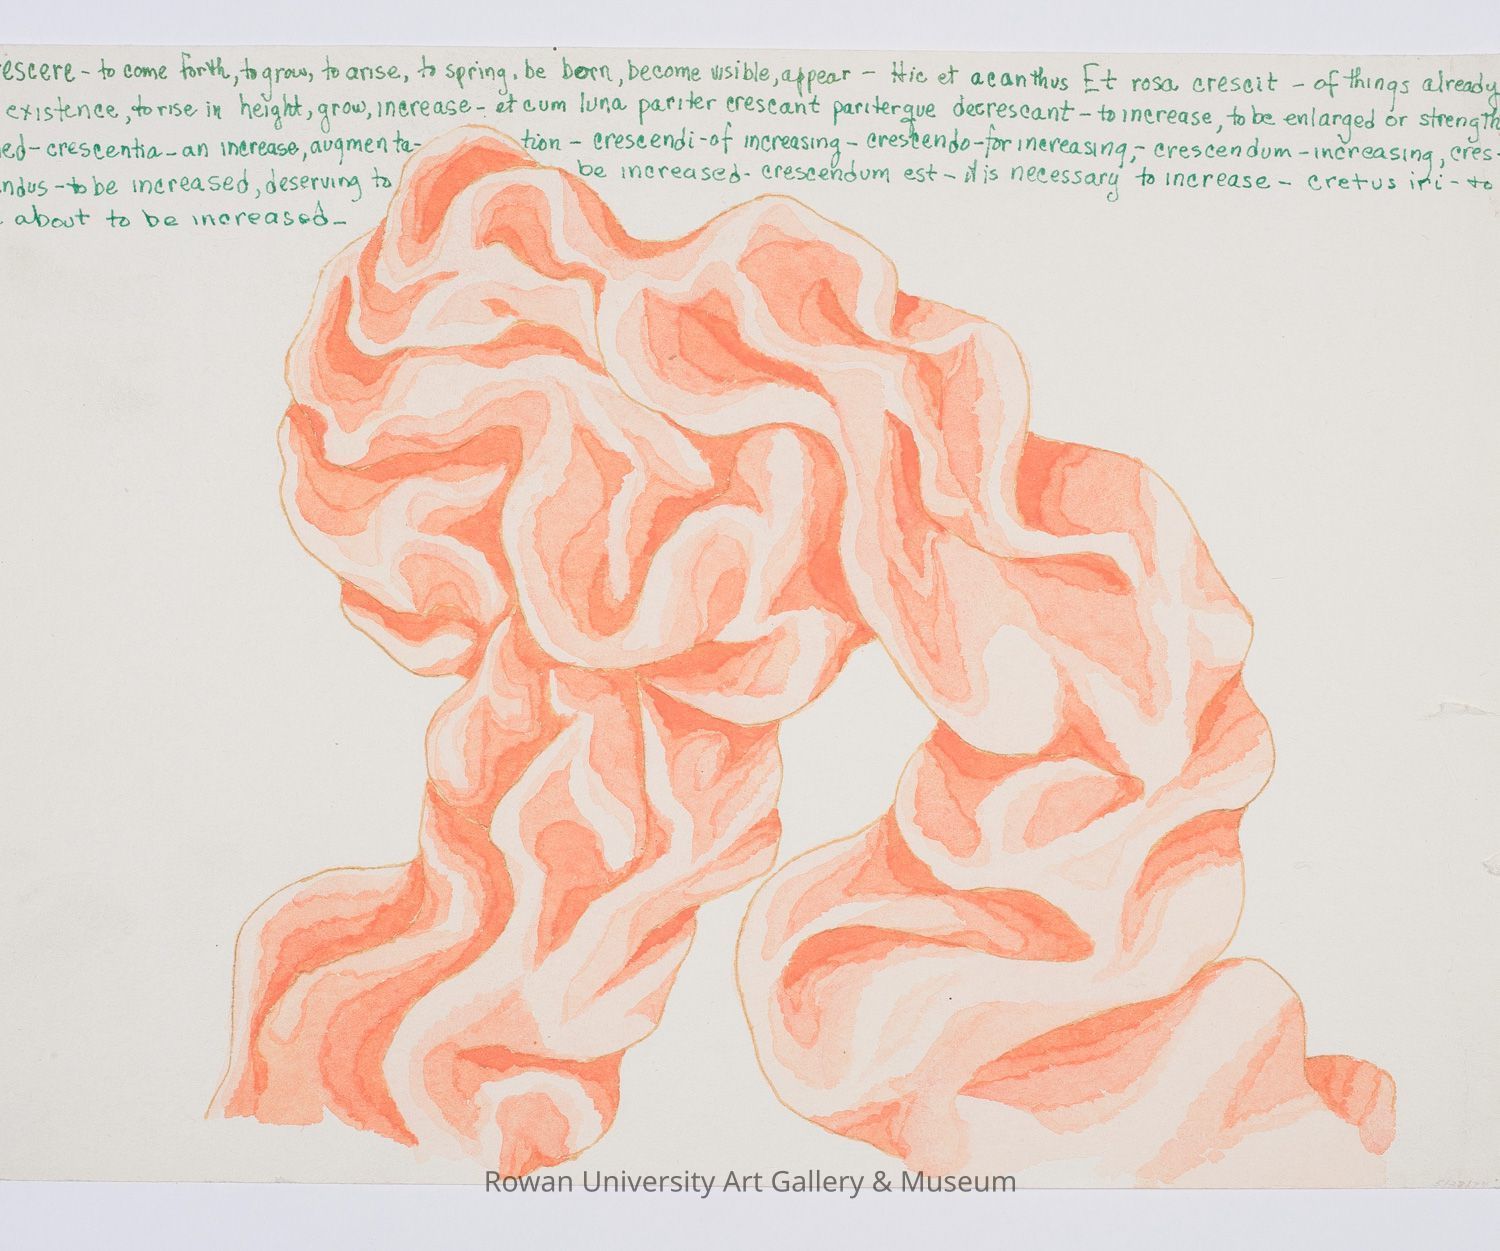 escere - to come forth, to grow, to arise, to spring, be born, become visible, appear - Hic et acanthus Et rosa crescit - of things already
existence, to rise in height, grow, increase - et cum luna pariter crescant pariterque decrescant - to increase, to be enlarged or strength
ed - crescentia - an increase, augmenta- tion - crescendi - of increasing - crescendo - for increasing, - crescendum - increasing, cres-
ndus - to be increased, deserving to be increased - crescendum est - it is necessary to increase - cretus iri - to
about to be increased -
Rowan University Art Gallery & Museum